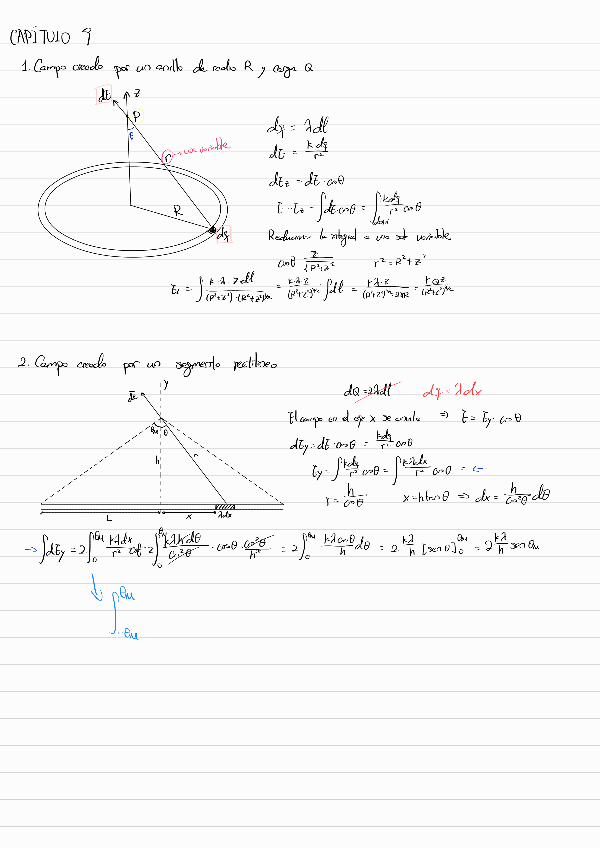 CAPÍTULO 9
1. Campo creado por un anillo de radio R y carga Q
dE
z
P
θ
r → una variable
R
dq
dq = λdl
dE = k dq / r²
dEz = dE · cosθ
E = Ez = ∫dE·cosθ = ∫ k dq / r² cosθ
Reducimos la integral a una sola variable
cosθ = z / √(R²+z²) r² = R²+z²
∫dl
2. Campo creado por un segmento rectilíneo
y
dE
θm θ
h
r
L
x
λdx
dQ = 2λdl dq = λdx
El campo en el eje x se anula ⇒ E = Ey · cosθ
dEy = dE · cosθ = k dq / r² cosθ
Ey = ∫ k dq / r² cosθ = ∫ kλdx / r² cosθ =
r = h / cosθ x = h tanθ ⇒ dx = h / cos²θ dθ
→ ∫dEy = 2∫₀^θm kλdx / r² cosθ = 2∫₀^θm kλh dθ / cos²θ · cosθ · cos²θ / h² = 2∫₀^θm kλ cosθ / h dθ = 2 · kλ / h [senθ]₀^θm = 2 kλ / h senθm
∫ θm
-θm